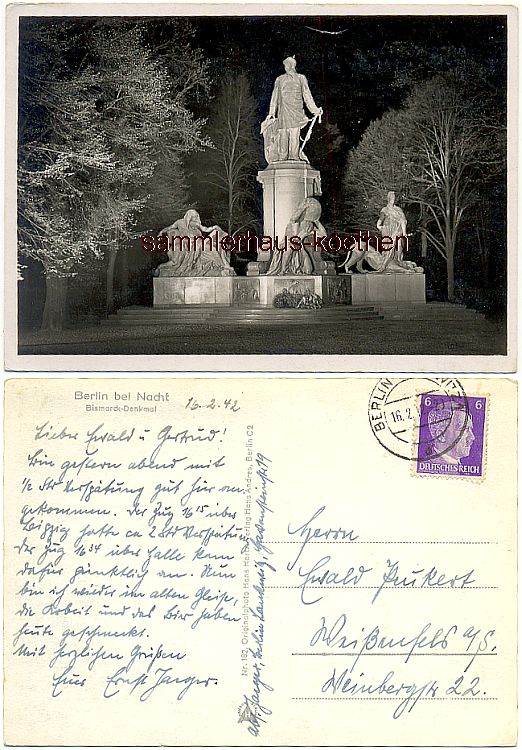 sammlerhaus-koethen
Berlin bei Nacht
Bismarck-Denkmal
16.2.42
Lieber Ewald u Gertrud!
Bin gestern abend mit
½ Std Verspätung gut hier an
gekommen. Der Zug 16 15 über
Leipzig hatte ca 2 Std Verspätung
der Zug 16 34 über Halle kam
dafür pünktlich an. Nun
bin ich wieder im alten Gleise,
die Arbeit und das Bier haben
heute geschmeckt.
Mit herzlichen Grüßen
Euer Ernst Jaeger.
Nr. 182, Originalphoto Hans Andres, Berlin C2
Abs. Jaeger, Berlin Lankwitz,
BERLIN
16.2.
6 6
DEUTSCHES REICH
Herrn
Ewald Puckert
Weißenfels a/S.
Weinbergstr 22.